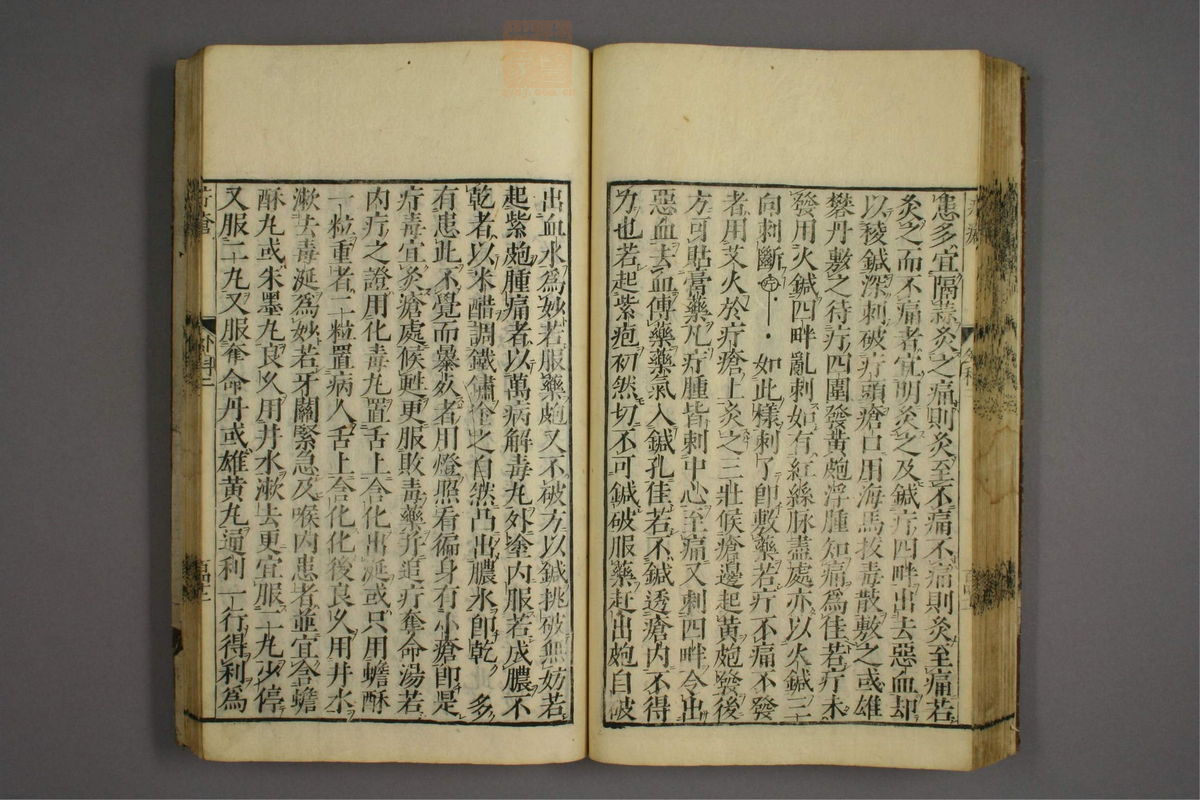 患多宜隔蒜灸之痛則灸至不痛不痛則灸至痛若
灸之而不痛者宜明灸之及鍼疔四畔出去惡血却
以稜鍼深刺破疔頭瘡口用海馬拔毒散敷之或雄
礬丹敷之待疔四圍發黃皰浮腫知痛爲佳若疔未
發用火鍼四畔亂刺如有紅絲脉盡處亦以火鍼三
向刺斷如此樣刺了卽敷藥若疔不痛不發
者用艾火於疔瘡上灸之三壯候瘡邊起黃皰發後
方可貼膏藥凡疔腫皆刺中心至痛又刺四畔令出
惡血去血傅藥藥氣入鍼孔佳若不鍼透瘡內不得
力也若起紫疱初然切不可鍼破服藥赶出皰自破
出血水爲妙若服藥皰又不破方以鍼挑破無妨若
起紫皰腫痛者以萬病解毒丸外塗內服若成膿不
乾者以米醋調鐵鏽塗之自然凸出膿水卽乾 多
有患此不覺而暴死者用燈照看徧身有小瘡卽是
疔毒宜灸瘡處候甦更服敗毒藥并追疔奪命湯若
內疔之證用化毒丸置舌上含化出涎或只用蟾酥
一粒重者二粒置病人舌上含化化後良久用井水
漱去毒涎爲妙若牙關緊急及喉內患者並宜含蟾
酥丸或朱墨丸良久用井水漱去更宜服二十丸少停
又服二十丸又服奪命丹或雄黃丸通利一行得利爲
疔瘡
外科二